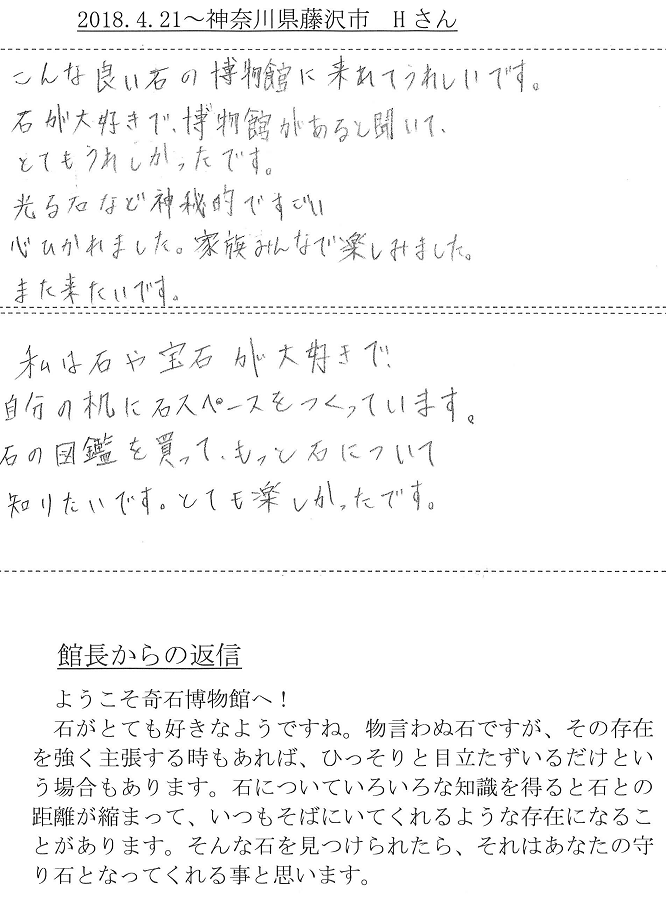 2018.4.21～神奈川県藤沢市　Hさん
こんな良い石の博物館に来れてうれしいです。
石が大好きで、博物館があると聞いて、
とてもうれしかったです。
光る石など神秘的ですごい
心ひかれました。家族みんなで楽しみました。
また来たいです。
私は石や宝石が大好きで、
自分の机に石スペースをつくっています。
石の図鑑を買って、もっと石について
知りたいです。とても楽しかったです。
館長からの返信
ようこそ奇石博物館へ！
石がとても好きなようですね。物言わぬ石ですが、その存在
を強く主張する時もあれば、ひっそりと目立たずいるだけとい
う場合もあります。石についていろいろな知識を得ると石との
距離が縮まって、いつもそばにいてくれるような存在になるこ
とがあります。そんな石を見つけられたら、それはあなたの守
り石となってくれる事と思います。